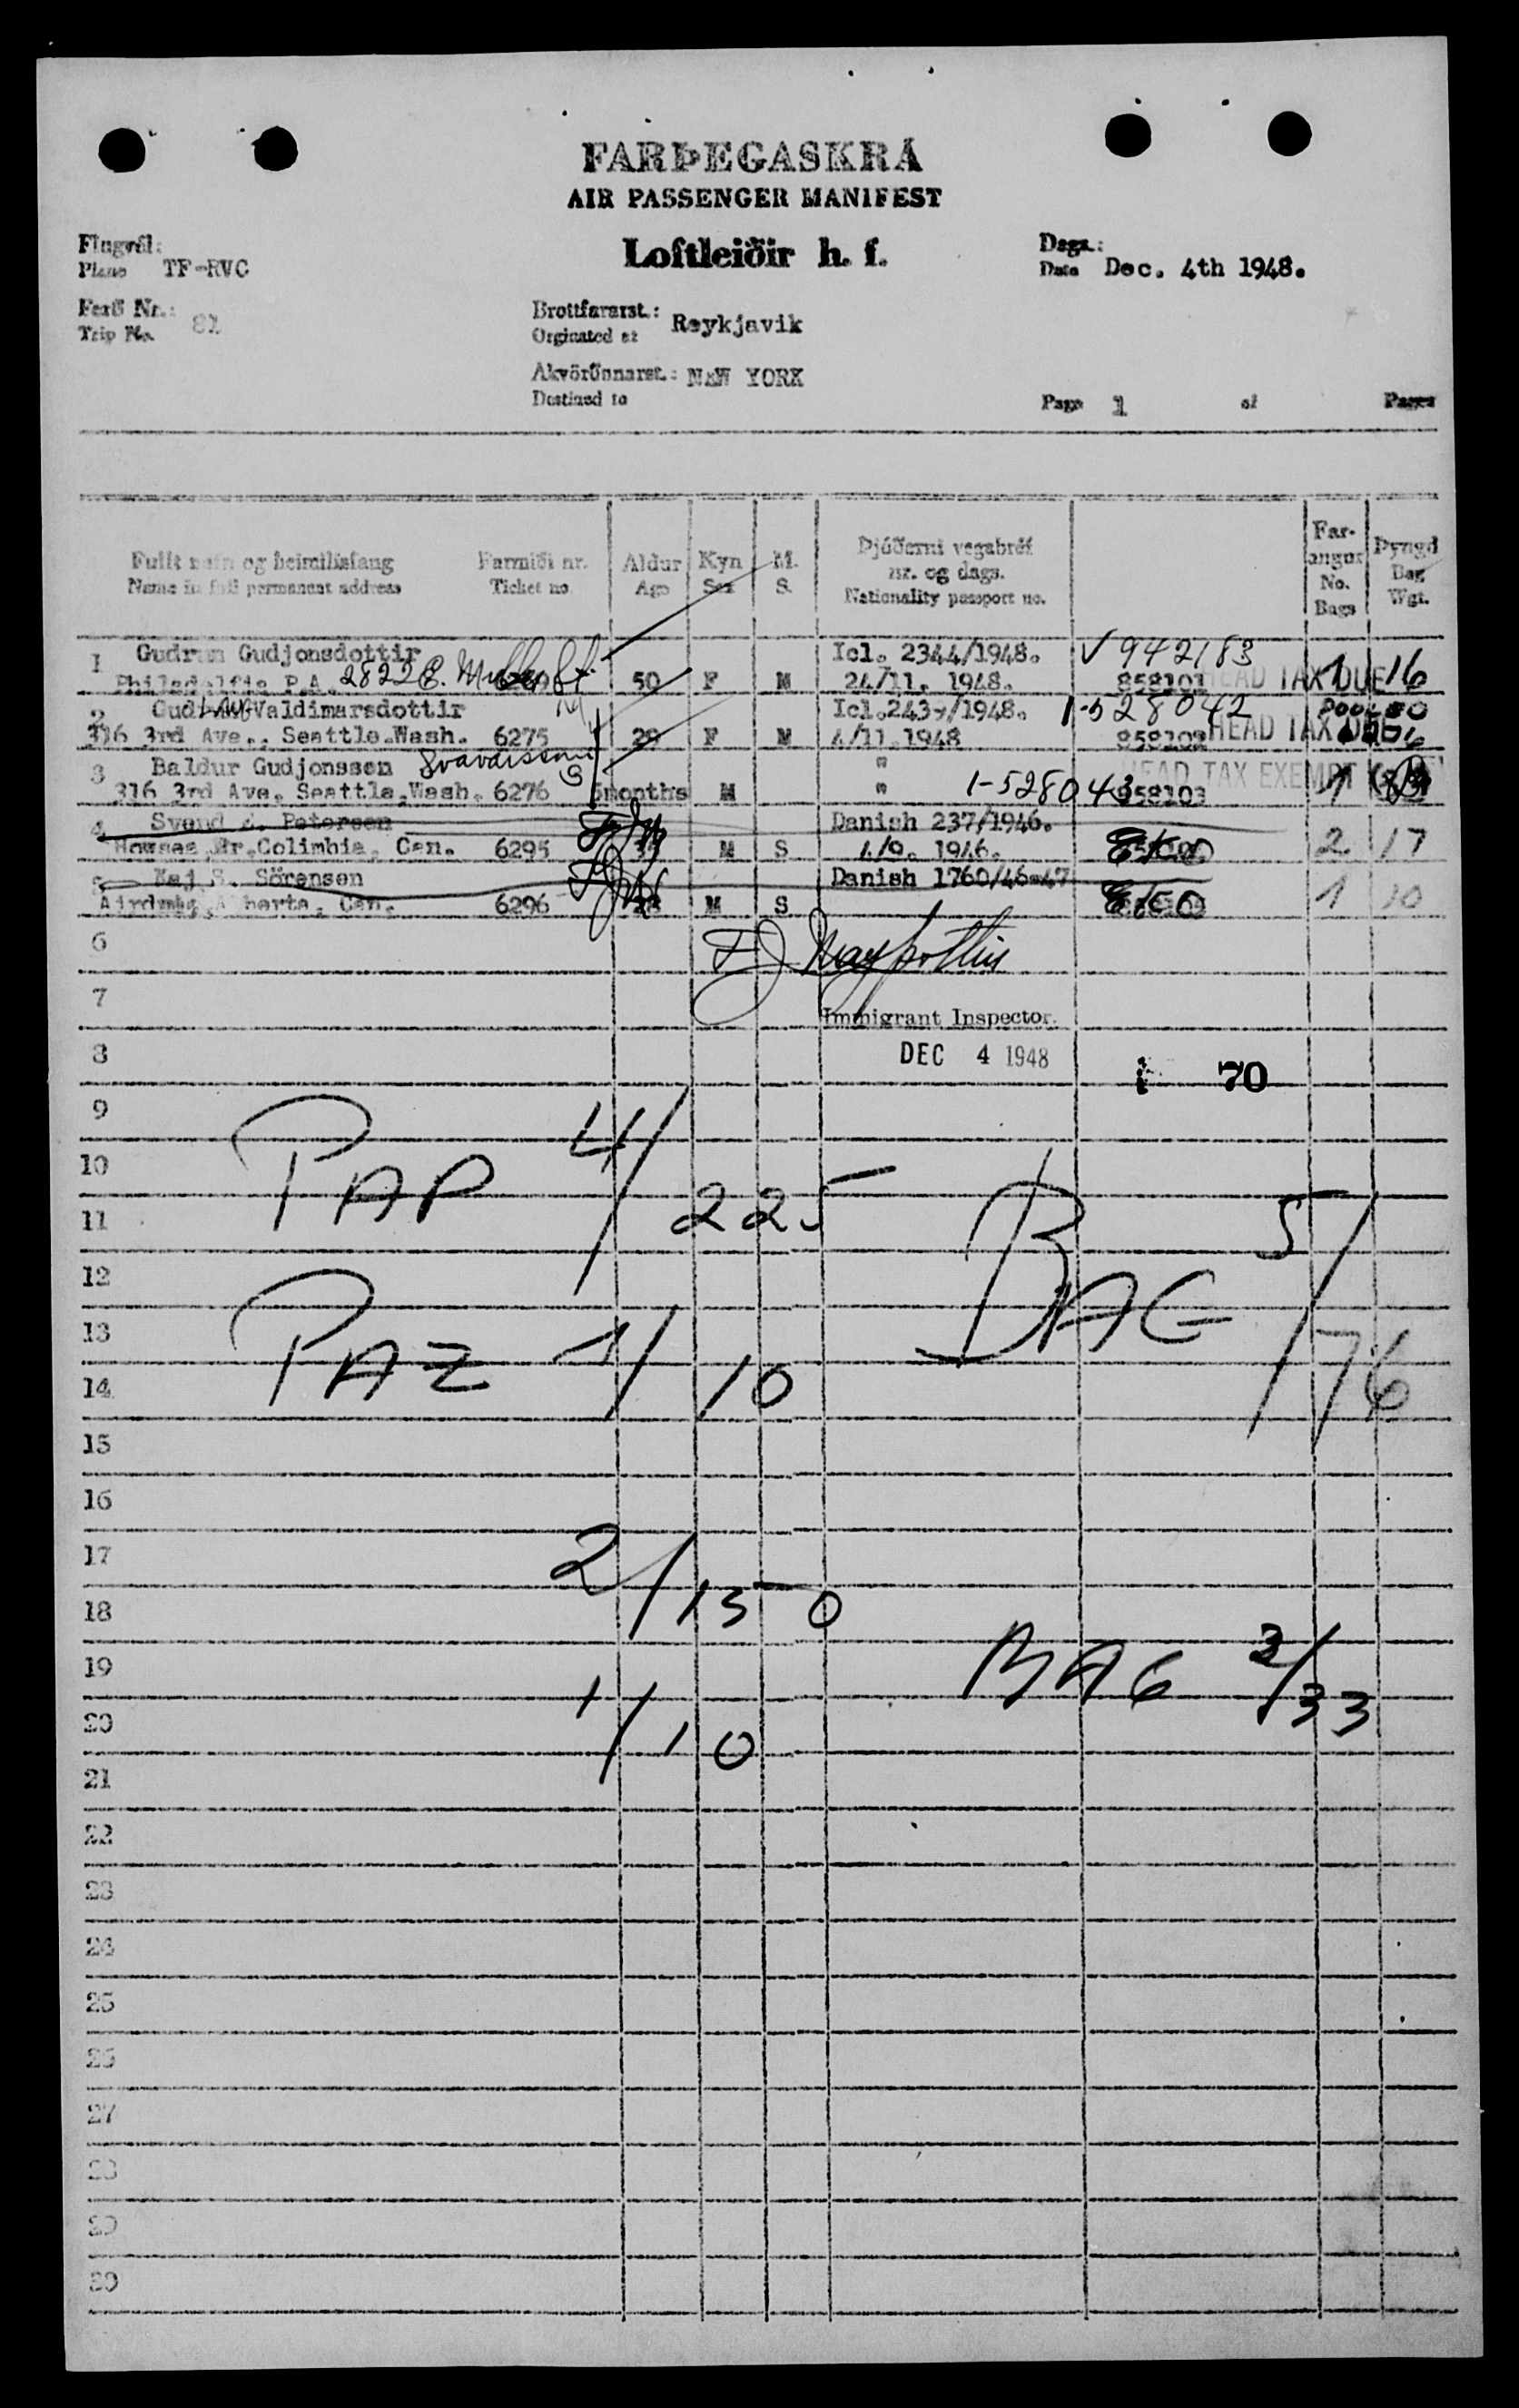 FARÞEGASKRÁ
AIR PASSENGER MANIFEST
Loftleiðir h. f.
Flugvél:
Plane TF-RVC
Dags.:
Date Dec. 4th 1948.
Ferð Nr.:
Trip No. 81
Brottfararst.:
Orginated at Reykjavik
Akvörðunarst.:
Destined to NEW YORK
Page 1 of Pages
Fullt nafn og heimilisfang
Name in full permanent address
Farmiði nr.
Ticket no.
Aldur
Age
Kyn
Sex
M.
S.
Þjóðerni vegabréf
nr. og dags.
Nationality passport no.
Far-
angur
No.
Bags
Þyngd
Bag
Wgt.
1 Gudrun Gudjonsdottir Icl. 2344/1948. V 942183
Philadelfia P.A. 2822 E. 50 F M 24/11. 1948. 858101 HEAD TAX DUE 1 16
2 Valdimarsdottir /1948. 1-528042
316 3rd Ave., Seattle.Wash. 6275 29 F M 4/11.1948 858102 HEAD TAX
3 Baldur Gudjonssen "
316 3rd Ave. Seattle.Wash. 6276 5months M " 1-528043 858103 HEAD TAX EXEMPT 1
4 Svend E. Petersen Danish 237/1946.
Colimbia, Can. 6295 M S 4/9. 1946. 2 17
5 Kaj S. Sörensen Danish 1760/46-47
Can. 6296 28 M S 1 10
6
7
Immigrant Inspector.
8
DEC 4 1948
70
9
10
PAP 4/225
11
BAG 5/76
12
13
PAZ 1/10
14
15
16
17
2/150
18
19
BAG 3/33
20
1/10
21
22
23
24
25
26
27
28
29
30